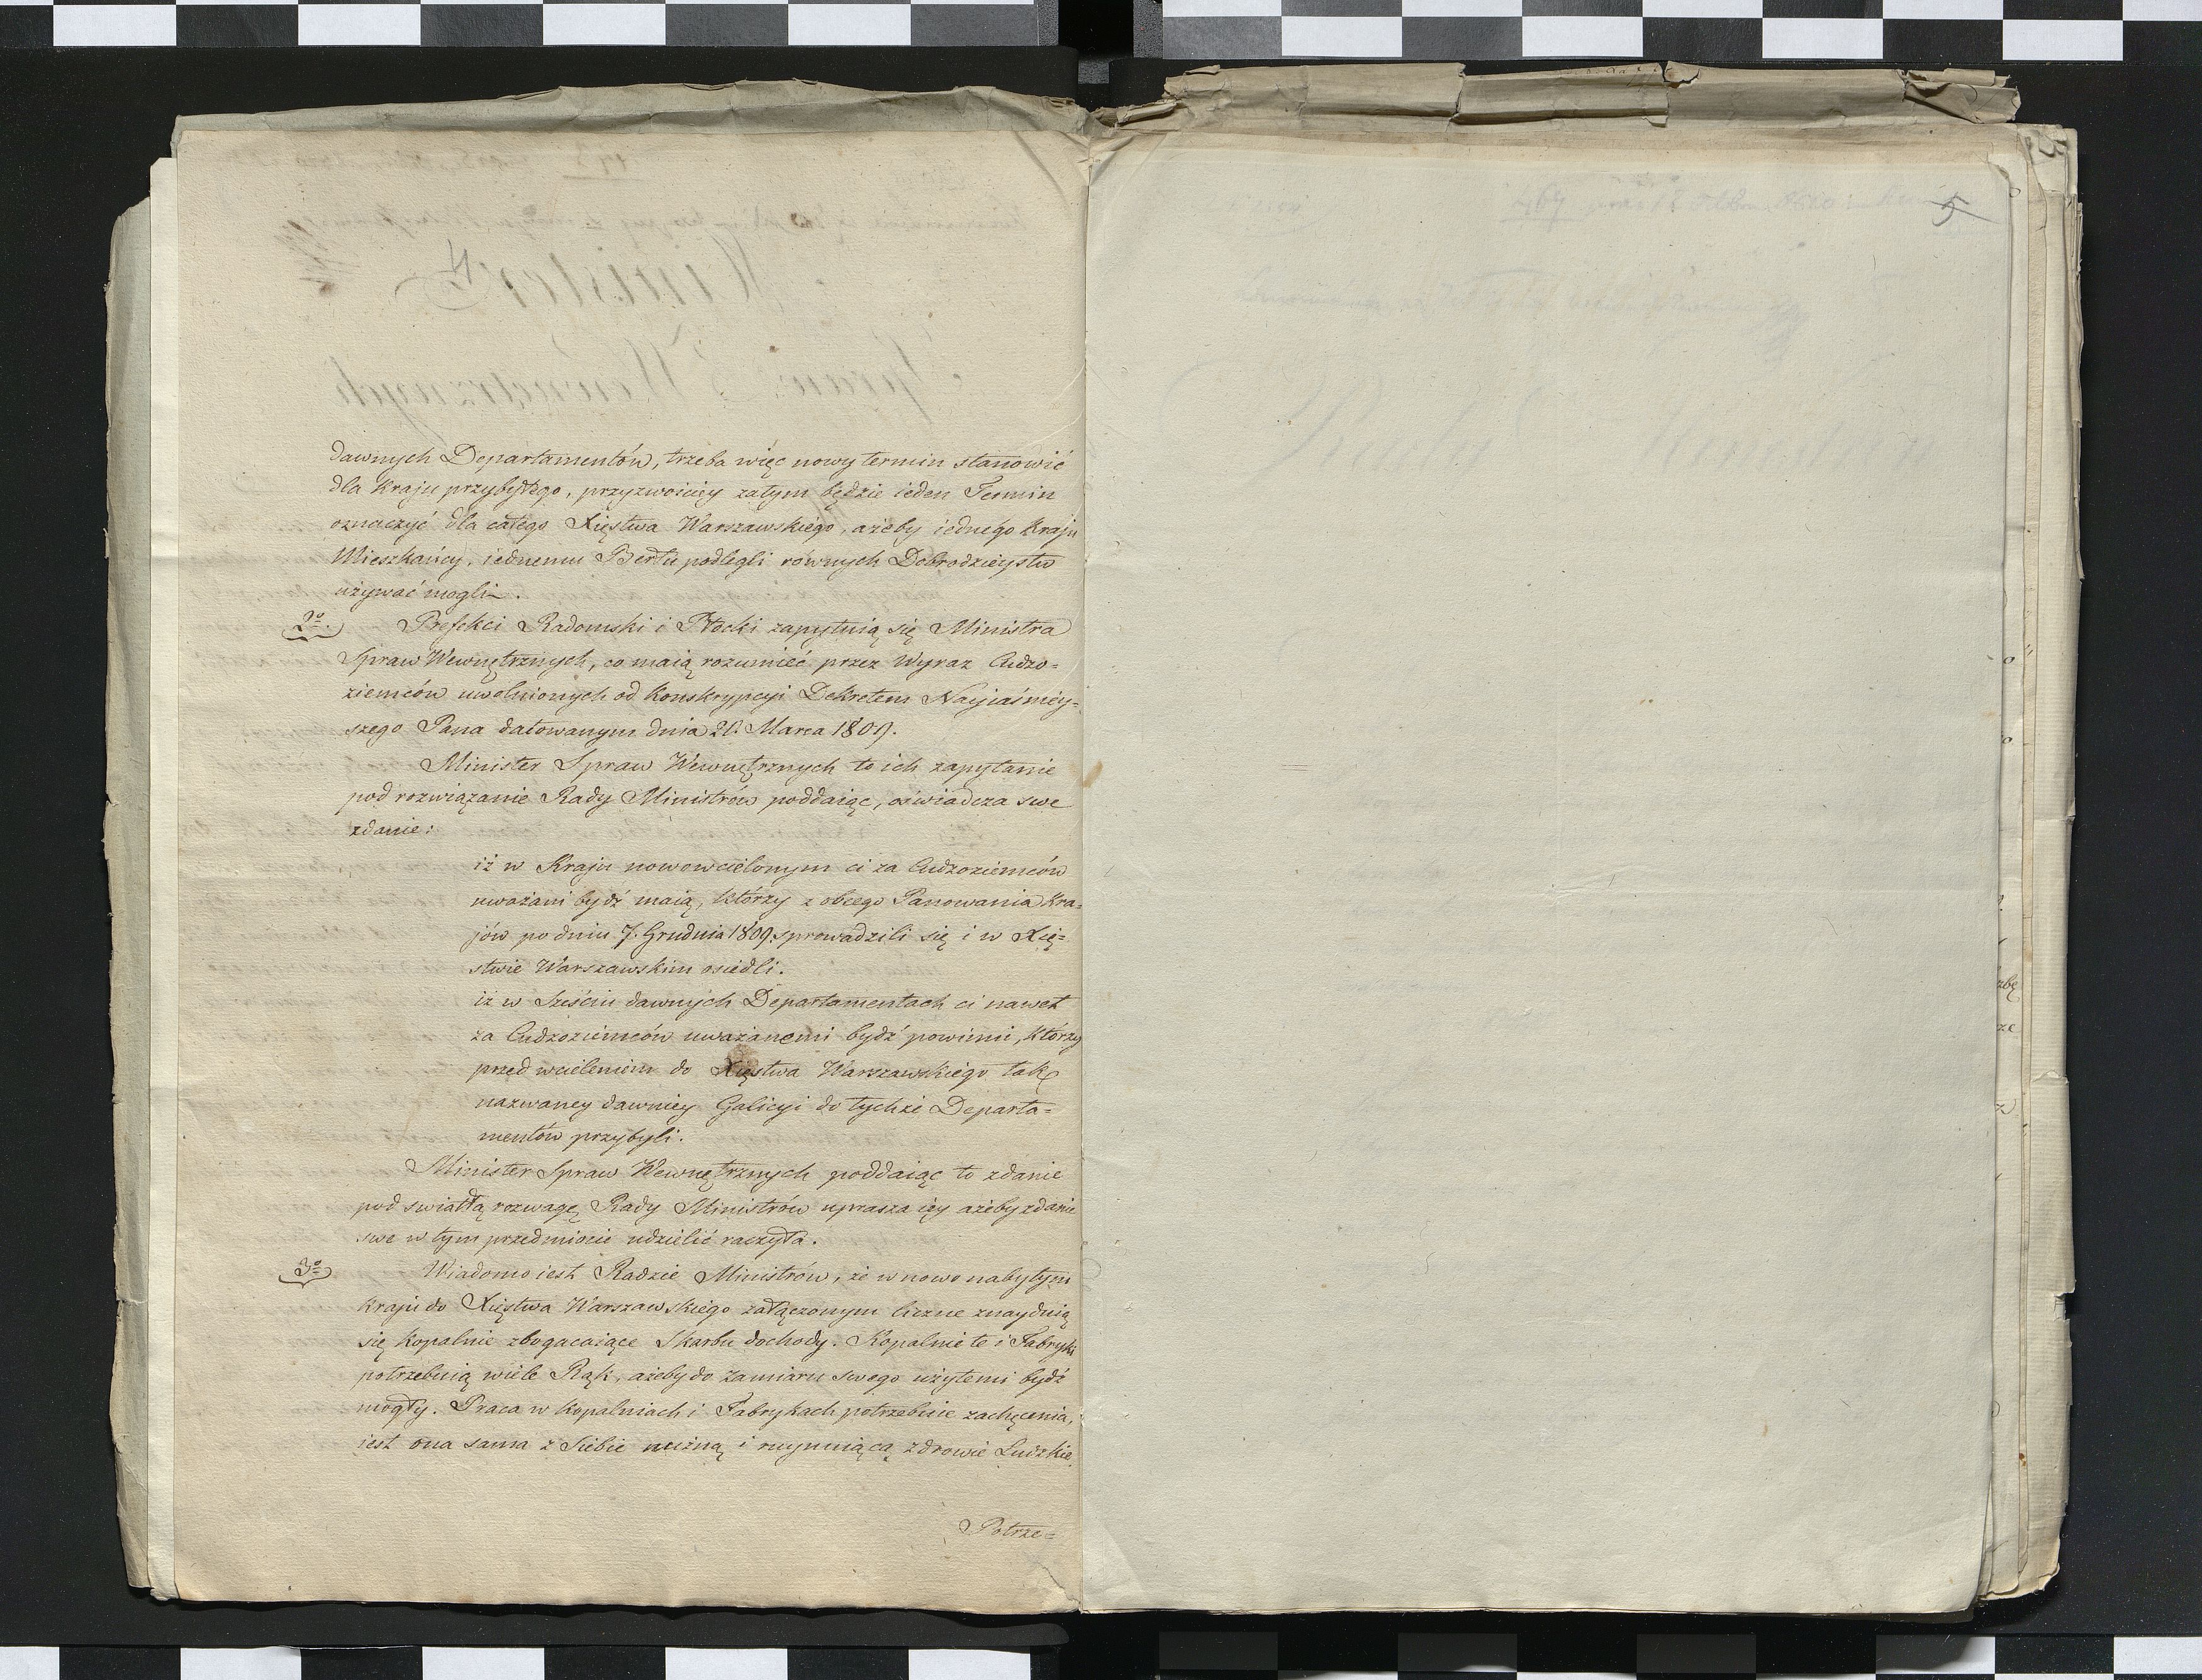 dawnych Departamentów, trzeba więc nowy termin stanowić
dla kraju przybyłego, przyzwoiciey zatym będzie ieden Termin
oznaczyć dla całego Xięstwa Warszawskiego, ażeby iednego Kraju
Mieszkańcy, iednemu Berłu podlegli rownych Dobrodzieystw
używać mogli.
2o. Prefekci Radomski i Płocki zapytuią się Ministra
Spraw Wewnętrznych, co maią rozumieć przez Wyraz Cudzo=
ziemców uwolnionych od Konskrypcyi Dekretem Nayiaśniéy=
szego Pana datowanym dnia 20. Marca 1809.
Minister Spraw Wewnętrznych to ich zapytanie
pod rozwiązanie Rady Ministrów poddaiąc, oświadcza swe
zdanie:
iż w Kraju nowowcielonym ci za Cudzoziemców
uważani bydź maią, którzy z obcego Panowania Kra=
jów po dniu 7. Grudnia 1809. sprowadzili się i w Xię=
stwie Warszawskim osiedli.
iż w Sześciu dawnych Departamentach ci nawet
za Cudzoziemców uważanemi bydź powinni, którzy
przed wcieleniem do Xięstwa Warszawskiégo tak
nazwaney dawniey Galicyi do tychże Departa=
mentów przybyli.
Minister Spraw Wewnętrznych poddaiąc to zdanie
pod swiatłą rozwagę Rady Ministrów uprasza iey ażeby zdanie
swe w tym przedmiocie udzielić raczyła.
3o Wiadomo iest Radzie Ministrów, że w nowo nabytym
kraju do Xięstwa Warszawskiégo załączonym liczne znayduią
się kopalnie zbogacaiące Skarbu dochody. Kopalnie te i Fabryki
potrzebuią wiele Rąk, ażeby do zamiaru swego użytemi bydź
mogły. Praca w kopalniach i Fabrykach potrzebuie zachęcenia,
iest ona sama z Siebie nużną i ruynuiącą zdrowie Ludzkie.
Potrze=
5